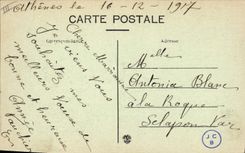 Athènes le 16-12-1917
CARTE POSTALE
Correspondance
Chère Marraine
Je viens vous
souhaiter mes
meilleurs vœux de
bonne et heureuse
Année
Melle
Antonia Blanc
à la Roque
Var
J.C
8